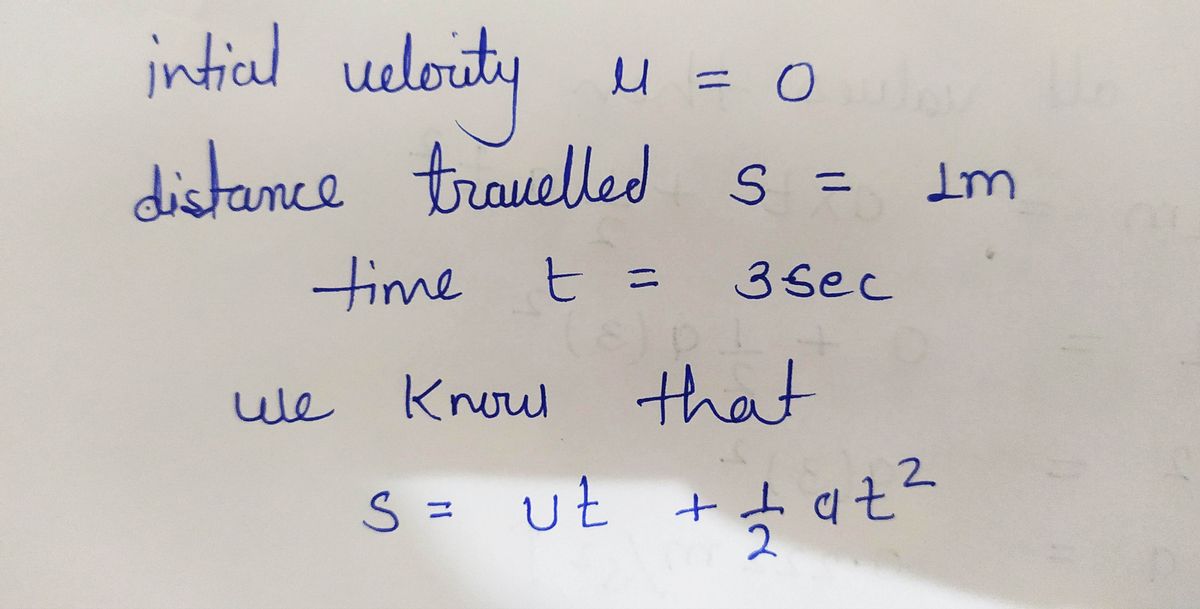 intial velocity u = 0
distance travelled s = 1m
time t = 3 sec
we know that
s = ut + 1/2 at²